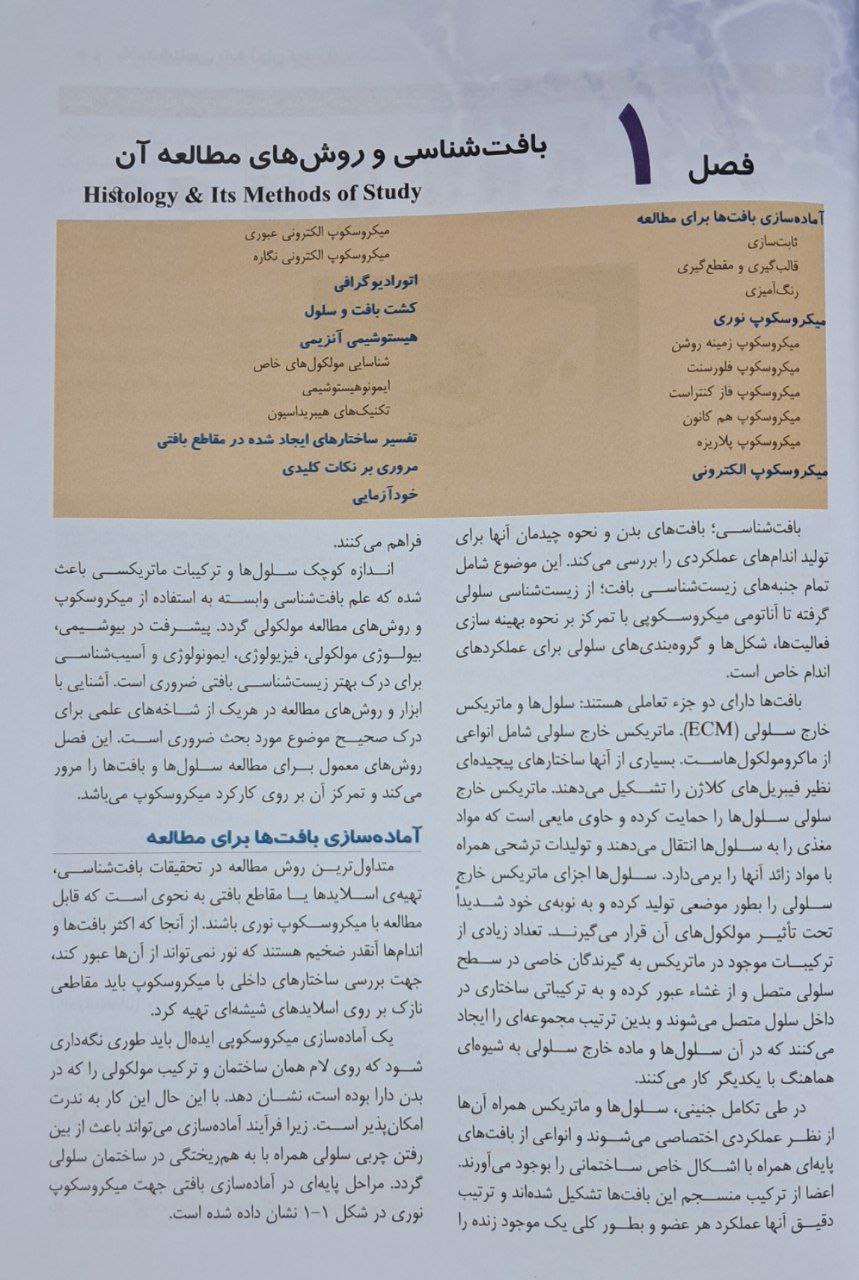 فصل ۱
بافت‌شناسی و روش‌های مطالعه آن
Histology & Its Methods of Study
آماده‌سازی بافت‌ها برای مطالعه
ثابت‌سازی
قالب‌گیری و مقطع‌گیری
رنگ‌آمیزی
میکروسکوپ نوری
میکروسکوپ زمینه روشن
میکروسکوپ فلورسنت
میکروسکوپ فاز کنتراست
میکروسکوپ هم کانون
میکروسکوپ پلاریزه
میکروسکوپ الکترونی
میکروسکوپ الکترونی عبوری
میکروسکوپ الکترونی نگاره
اتورادیوگرافی
کشت بافت و سلول
هیستوشیمی آنزیمی
شناسایی مولکول‌های خاص
ایمونوهیستوشیمی
تکنیک‌های هیبریداسیون
تفسیر ساختارهای ایجاد شده در مقاطع بافتی
مروری بر نکات کلیدی
خودآزمایی
بافت‌شناسی؛ بافت‌های بدن و نحوه چیدمان آنها برای
تولید اندام‌های عملکردی را بررسی می‌کند. این موضوع شامل
تمام جنبه‌های زیست‌شناسی بافت؛ از زیست‌شناسی سلولی
گرفته تا آناتومی میکروسکوپی با تمرکز بر نحوه بهینه سازی
فعالیت‌ها، شکل‌ها و گروه‌بندی‌های سلولی برای عملکردهای
اندام خاص است.
بافت‌ها دارای دو جزء تعاملی هستند: سلول‌ها و ماتریکس
خارج سلولی (ECM). ماتریکس خارج سلولی شامل انواعی
از ماکرومولکول‌هاست. بسیاری از آنها ساختارهای پیچیده‌ای
نظیر فیبریل‌های کلاژن را تشکیل می‌دهند. ماتریکس خارج
سلولی سلول‌ها را حمایت کرده و حاوی مایعی است که مواد
مغذی را به سلول‌ها انتقال می‌دهند و تولیدات ترشحی همراه
با مواد زائد آنها را برمی‌دارد. سلول‌ها اجزای ماتریکس خارج
سلولی را بطور موضعی تولید کرده و به نوبه‌ی خود شدیداً
تحت تأثیر مولکول‌های آن قرار می‌گیرند. تعداد زیادی از
ترکیبات موجود در ماتریکس به گیرندگان خاصی در سطح
سلولی متصل و از غشاء عبور کرده و به ترکیباتی ساختاری در
داخل سلول متصل می‌شوند و بدین ترتیب مجموعه‌ای را ایجاد
می‌کنند که در آن سلول‌ها و ماده خارج سلولی به شیوه‌ای
هماهنگ با یکدیگر کار می‌کنند.
در طی تکامل جنینی، سلول‌ها و ماتریکس همراه آن‌ها
از نظر عملکردی اختصاصی می‌شوند و انواعی از بافت‌های
پایه‌ای همراه با اشکال خاص ساختمانی را بوجود می‌آورند.
اعضا از ترکیب منسجم این بافت‌ها تشکیل شده‌اند و ترتیب
دقیق آنها عملکرد هر عضو و بطور کلی یک موجود زنده را
فراهم می‌کنند.
اندازه کوچک سلول‌ها و ترکیبات ماتریکسی باعث
شده که علم بافت‌شناسی وابسته به استفاده از میکروسکوپ
و روش‌های مطالعه مولکولی گردد. پیشرفت در بیوشیمی،
بیولوژی مولکولی، فیزیولوژی، ایمونولوژی و آسیب‌شناسی
برای درک بهتر زیست‌شناسی بافتی ضروری است. آشنایی با
ابزار و روش‌های مطالعه در هریک از شاخه‌های علمی برای
درک صحیح موضوع مورد بحث ضروری است. این فصل
روش‌های معمول برای مطالعه سلول‌ها و بافت‌ها را مرور
می‌کند و تمرکز آن بر روی کارکرد میکروسکوپ می‌باشد.
آماده‌سازی بافت‌ها برای مطالعه
متداول‌ترین روش مطالعه در تحقیقات بافت‌شناسی،
تهیه‌ی اسلایدها یا مقاطع بافتی به نحوی است که قابل
مطالعه با میکروسکوپ نوری باشند. از آنجا که اکثر بافت‌ها و
اندام‌ها آنقدر ضخیم هستند که نور نمی‌تواند از آن‌ها عبور کند،
جهت بررسی ساختارهای داخلی با میکروسکوپ باید مقاطعی
نازک بر روی اسلایدهای شیشه‌ای تهیه کرد.
یک آماده‌سازی میکروسکوپی ایده‌ال باید طوری نگه‌داری
شود که روی لام همان ساختمان و ترکیب مولکولی را که در
بدن دارا بوده است، نشان دهد. با این حال این کار به ندرت
امکان‌پذیر است. زیرا فرآیند آماده‌سازی می‌تواند باعث از بین
رفتن چربی سلولی همراه با به هم‌ریختگی در ساختمان سلولی
گردد. مراحل پایه‌ای در آماده‌سازی بافتی جهت میکروسکوپ
نوری در شکل ۱-۱ نشان داده شده است.